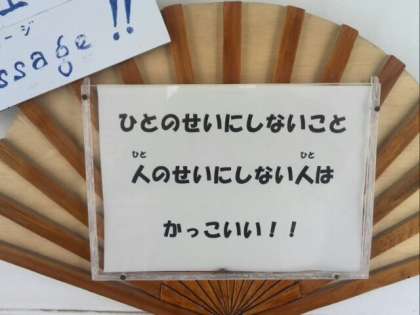 ージ
ssage!!
ひとのせいにしないこと
人のせいにしない人は
かっこいい!!